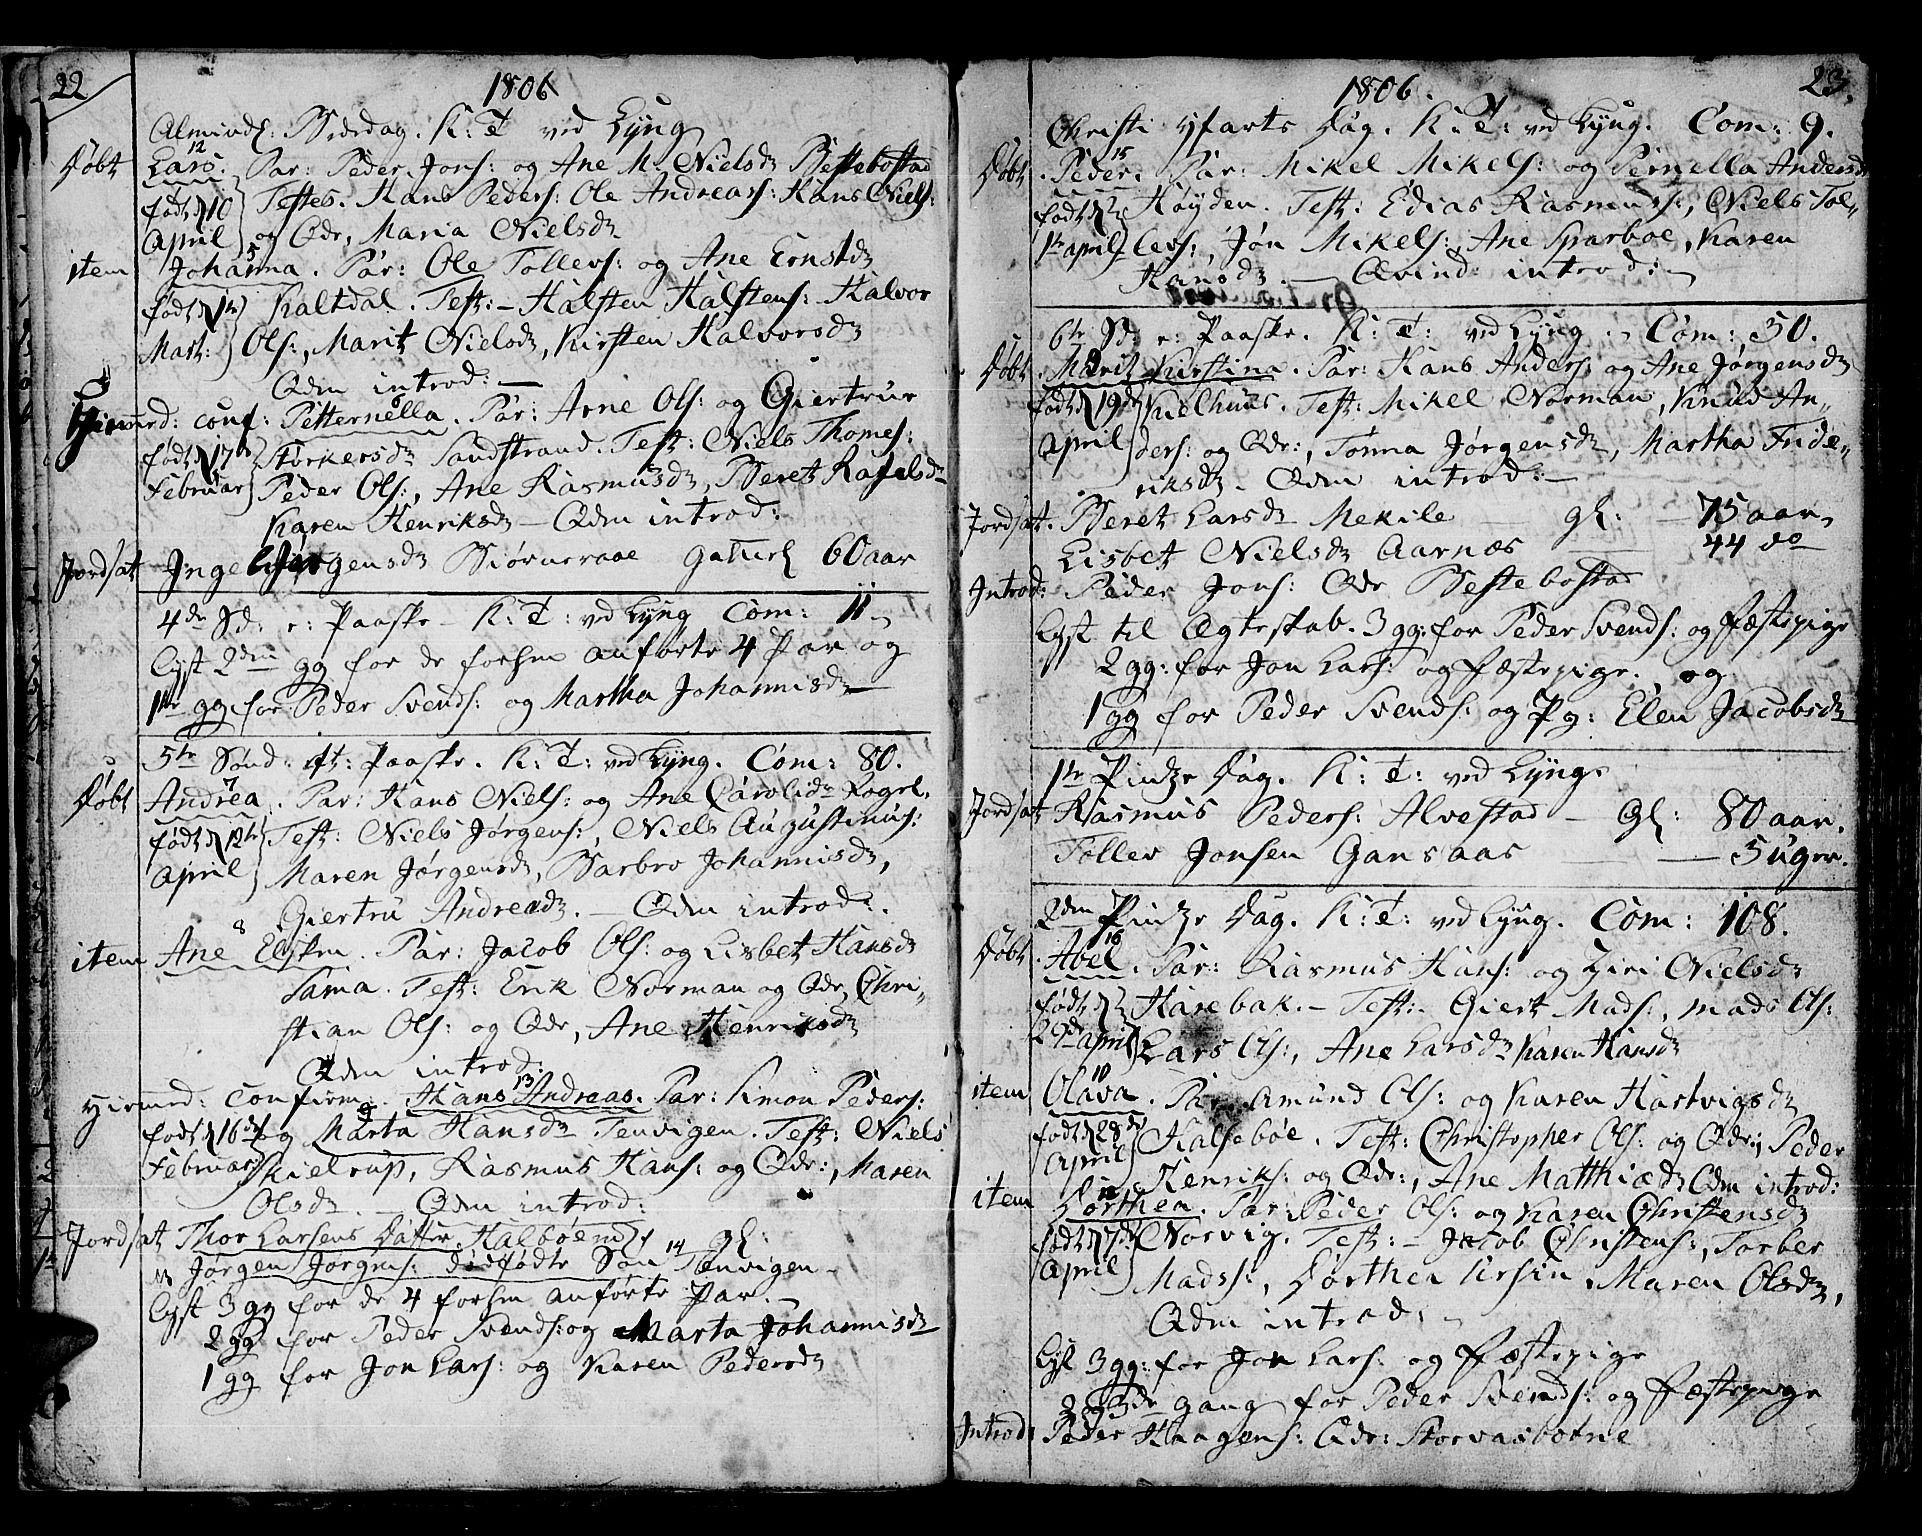 22
1806
Almindl: Bededag. K: T ved Lyng
Døbt Lars. 12 Par: Peder Jons: og Ane M. Nielsdr Bessebostad
født d 10 Testes. Hans Peders: Ole Andreass: Hans Niels:
April og Qdr, Maria Nielsdr
item Johanna. 5 Par: Ole Tollevs: og Ane Ernstdr
født d Kaltdal. Test: – Halsten Halstens: Halvor
Mart: Ols:, Marit Nielsdr, Kirsten Halvorsdr
Qdm introd: –
Hiemmed: conf: Petternella. 6 Par: Arne Ols: og Giertrur
født d 17 Størkersdr Sandstrand. Test: Niels Thomes:
Februar Peder Ols:, Ane Rasmusdr, Beret Rafelsdr
Karen Henriksdr – Qdm introd:
Jordsat Ingebor Jørgensdr Biørneraae gl 60 aar
4de Sd: e: Paaske – K: T: ved Lyng Com: 11
Lyst 2den gg for de forhen anførte 4 Par og
1te gg for Peder Svends: og Martha Johannisdr
5te Sønd: eft: Paaske. K: T: ved Lyng. Com: 80.
Døbt Andrea. 7 Par: Hans Niels: og Ane Carolidr Rogel.
født d 12te Test: Niels Jørgens:, Niels Augustinus:
April Maren Jørgensdr, Barbro Johannisdr,
Giertru Andreadr. – Qdm introd:.
item Ane Elsken. 8 Par: Jacob Ols: og Lisbet Hansdr
Sama. Test: Erik Norman og Qdr, Chri-
stian Ols: og Qdr, Ane Henriksdr
Qdm introd:
Hiemed: confirm. Hans Andreas. 13 Par: Simon Peders:
født d 16de og Marta Hansdr Tenvigen. Test: Niels
Februar Skielrup, Rasmus Hans: og Qdr:, Maren
Olsdr. – Qdm introd:
Jordsat Thor Larsens Datter Halbøem gl:
Jørgen Jørgens: dødfødte Søn 14 Tenvigen –
Lyst 3 gg for de 4 forhen anførte Par. –
2 gg for Peder Svends: og Marta Johannisdr
1 gg for Jon Lars: og Karen Pedersdr
23.
1806.
Christi Hfarts Dag. K: T: ved Lyng. Com: 9.
Døbt Peder. 15 Par: Mikel Mikels: og Pernella Andersdr
født d Høyden. Test: Edias Rasmuss:, Niels Tol-
1te april levs:, Jon Mikels:, Ane Sparboe, Karen
Hansdr. – Qvind: introd: –
6te Sd: e: Paaske. K: T: ved Lyng. Com: 50.
Døbt Marit Kirstina. Par: Hans Anders: og Ane Jørgensdr
født d 19de Kielhuus. Test: Mikel Norman, Knud An-
April ders: og Qdr:, Tonna Jørgensdr, Martha Fride-
riksdr – Qdm introd: –
Jordsat. Beret Larsdr Mekile gl: – 75 aar,
Lisbet Nielsdr Aarnæs – 44 do
Introd: Peder Jons: Qdr Bessebostad
Lyst til Ægteskab. 3 gg: for Peder Svends: og Fæstepige
2 gg: for Jon Lars: og fæstepige. og
1 gg for Peder Svends: og Pg: Elen Jacobsdr
1te Pintze Dag. K: T: ved Lyng.
Jordsat Rasmus Peders: Alvestad – gl: 80 aar.
Tollev Jonsen Gansaas – 5 uger.
2den Pintze Dag. K: T: ved Lyng. Com: 108.
Døbt Abel. 16 Par: Rasmus Hans: og Ziri Nielsdr
født d Harebak. – Test: Giert Mads:, mads Ols:
29de april Lars Ols:, Ane Larsdr Karen Hansdr
item Olava. 10 Par: Amund Ols: og Karen Hartvigsdr
født d 28de Halsebøe. Test: Christopher Ols: og Qdr:, Peder
April Henriks: og Qdr:, Ane Matthiædr Qdm introd:
item Dorthea. 11 Par: Peder Ols: og Karen Christensdr
født d 7de Norvig. Test: – Jacob Christens:, Torber
April Madss:, Dorthea Ursin, Maren Olsdr,
Qdm introd:
Lyst 3 gg: for Jon Lars: og fæstepige
2 og 3de gang for Peder Svends: og fæstepige
Introd: Peder Haagens: Qdr: Storvasbotne